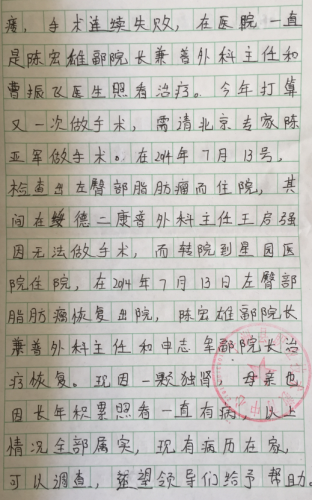 瘪，手术连续失败，在医院一直
是陈宏雄副院长兼普外科主任和
曹振飞医生照看治疗。今年打算
又一次做手术，需请北京专家陈
亚军做手术。在2014年7月13号，
检查出左臀部脂肪瘤而住院，其
间在绥德二康普外科主任王启强
因无法做手术，而转院到星园医
院住院，在2014年7月13日左臀部
脂肪瘤恢复出院，陈宏雄副院长
兼普外科主任和申志军副院长治
疗恢复。现因一颗独肾，母亲也
因长年积累照看一直有病，以上
情况全部属实，现有病历在家
可以调查，望领导们给予帮助。